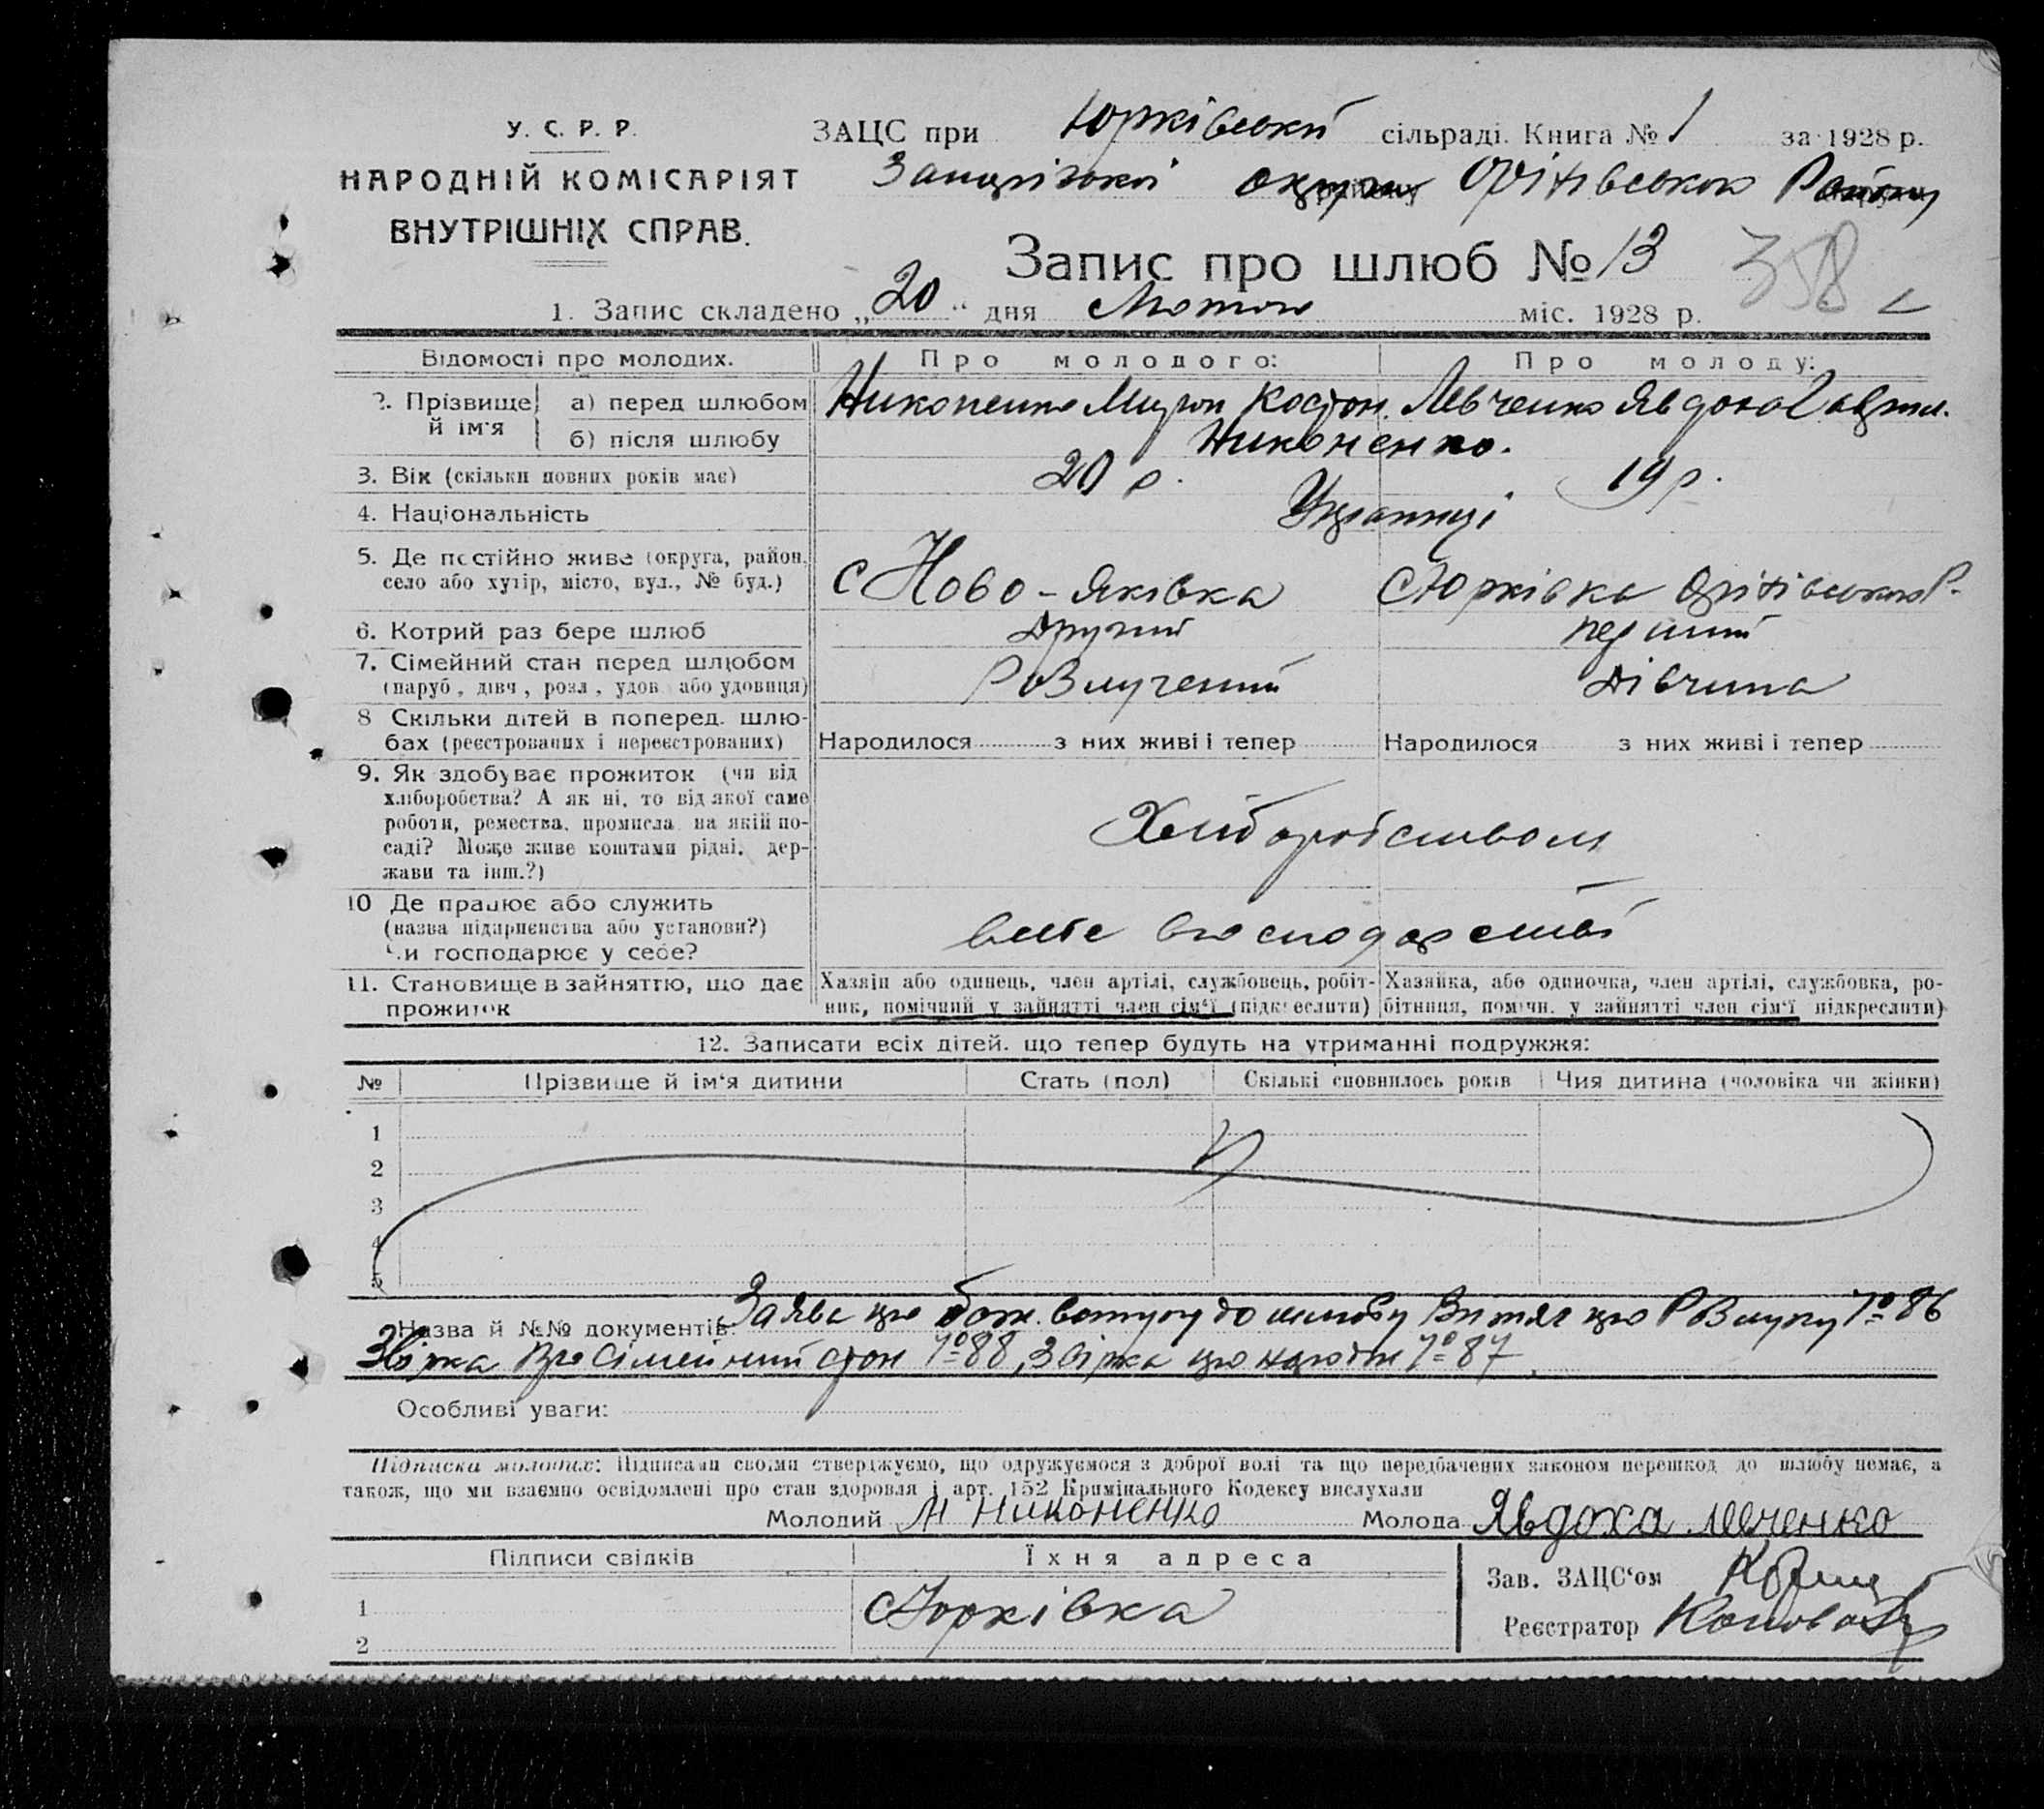 У. С. Р. Р.
НАРОДНІЙ КОМІСАРІЯТ
ВНУТРІШНІХ СПРАВ.
ЗАЦС при Юрківській сільраді. Книга № 1 за 1928 р.
Запорізької округи Оріхівського Району
Запис про шлюб № 13
358
1. Запис складено „20“ дня Лютого міс. 1928 р.
Відомості про молодих. Про молодого: Про молоду:
2. Прізвище й ім'я а) перед шлюбом Никоненко Мирон Костян. Левченко Явдоха Гаврил.
б) після шлюбу Никоненко.
3. Вік (скільки повних років має) 20 р. 19 р.
4. Національність Українці
5. Де постійно живе (округа, район, село або хутір, місто, вул., № буд.) с Ново-Яківка с Юрківка Оріхівського Р.
6. Котрий раз бере шлюб Другий перший
7. Сімейний стан перед шлюбом (паруб., дівч., розл., удов. або удовиця) Розлучений Дівчина
8 Скільки дітей в поперед. шлюбах (реєстрованих і нереєстрованих) Народилося з них живі і тепер Народилося з них живі і тепер
9. Як здобуває прожиток (чи від
хліборобства? А як ні, то від якої саме
роботи, ремества, промисла на якій по-
саді? Може живе коштами рідні, дер-
жави та інш.?)
Хліборобством
10 Де працює або служить
(назва підприємства або установи?)
Чи господарює у себе?
господарстві
11. Становище в зайняттю, що дає прожиток
Хазяїн або одинець, член артілі, службовець, робіт-
ник, помічний у зайнятті член сім'ї (підкреслити)
Хазяйка, або одиночка, член артілі, службовка, ро-
бітниця, помічн. у зайнятті член сім'ї підкреслити)
12. Записати всіх дітей, що тепер будуть на утриманні подружжя:
№ Прізвище й ім'я дитини Стать (пол) Скількі сповнилось років Чия дитина (чоловіка чи жінки)
1
2
3
4
5
Назва й №№ документів: Заява про баж. вступу до шлюбу Витяг про Розлуку № 86
Звірка про Сімейний стан № 88, Звірка про народж № 87
Особливі уваги:
Підписи молодих: Підписами своїми стверджуємо, що одружуємося з доброї волі та що передбачених законом перешкод до шлюбу немає, а
також, що ми взаємно освідомлені про стан здоровля і арт. 152 Кримінального Кодексу вислухали
Молодий М Никоненко Молода Явдоха Левченко
Підписи свідків Їхня адреса
Зав. ЗАЦС'ом
1 с Юрківка
Реєстратор
2